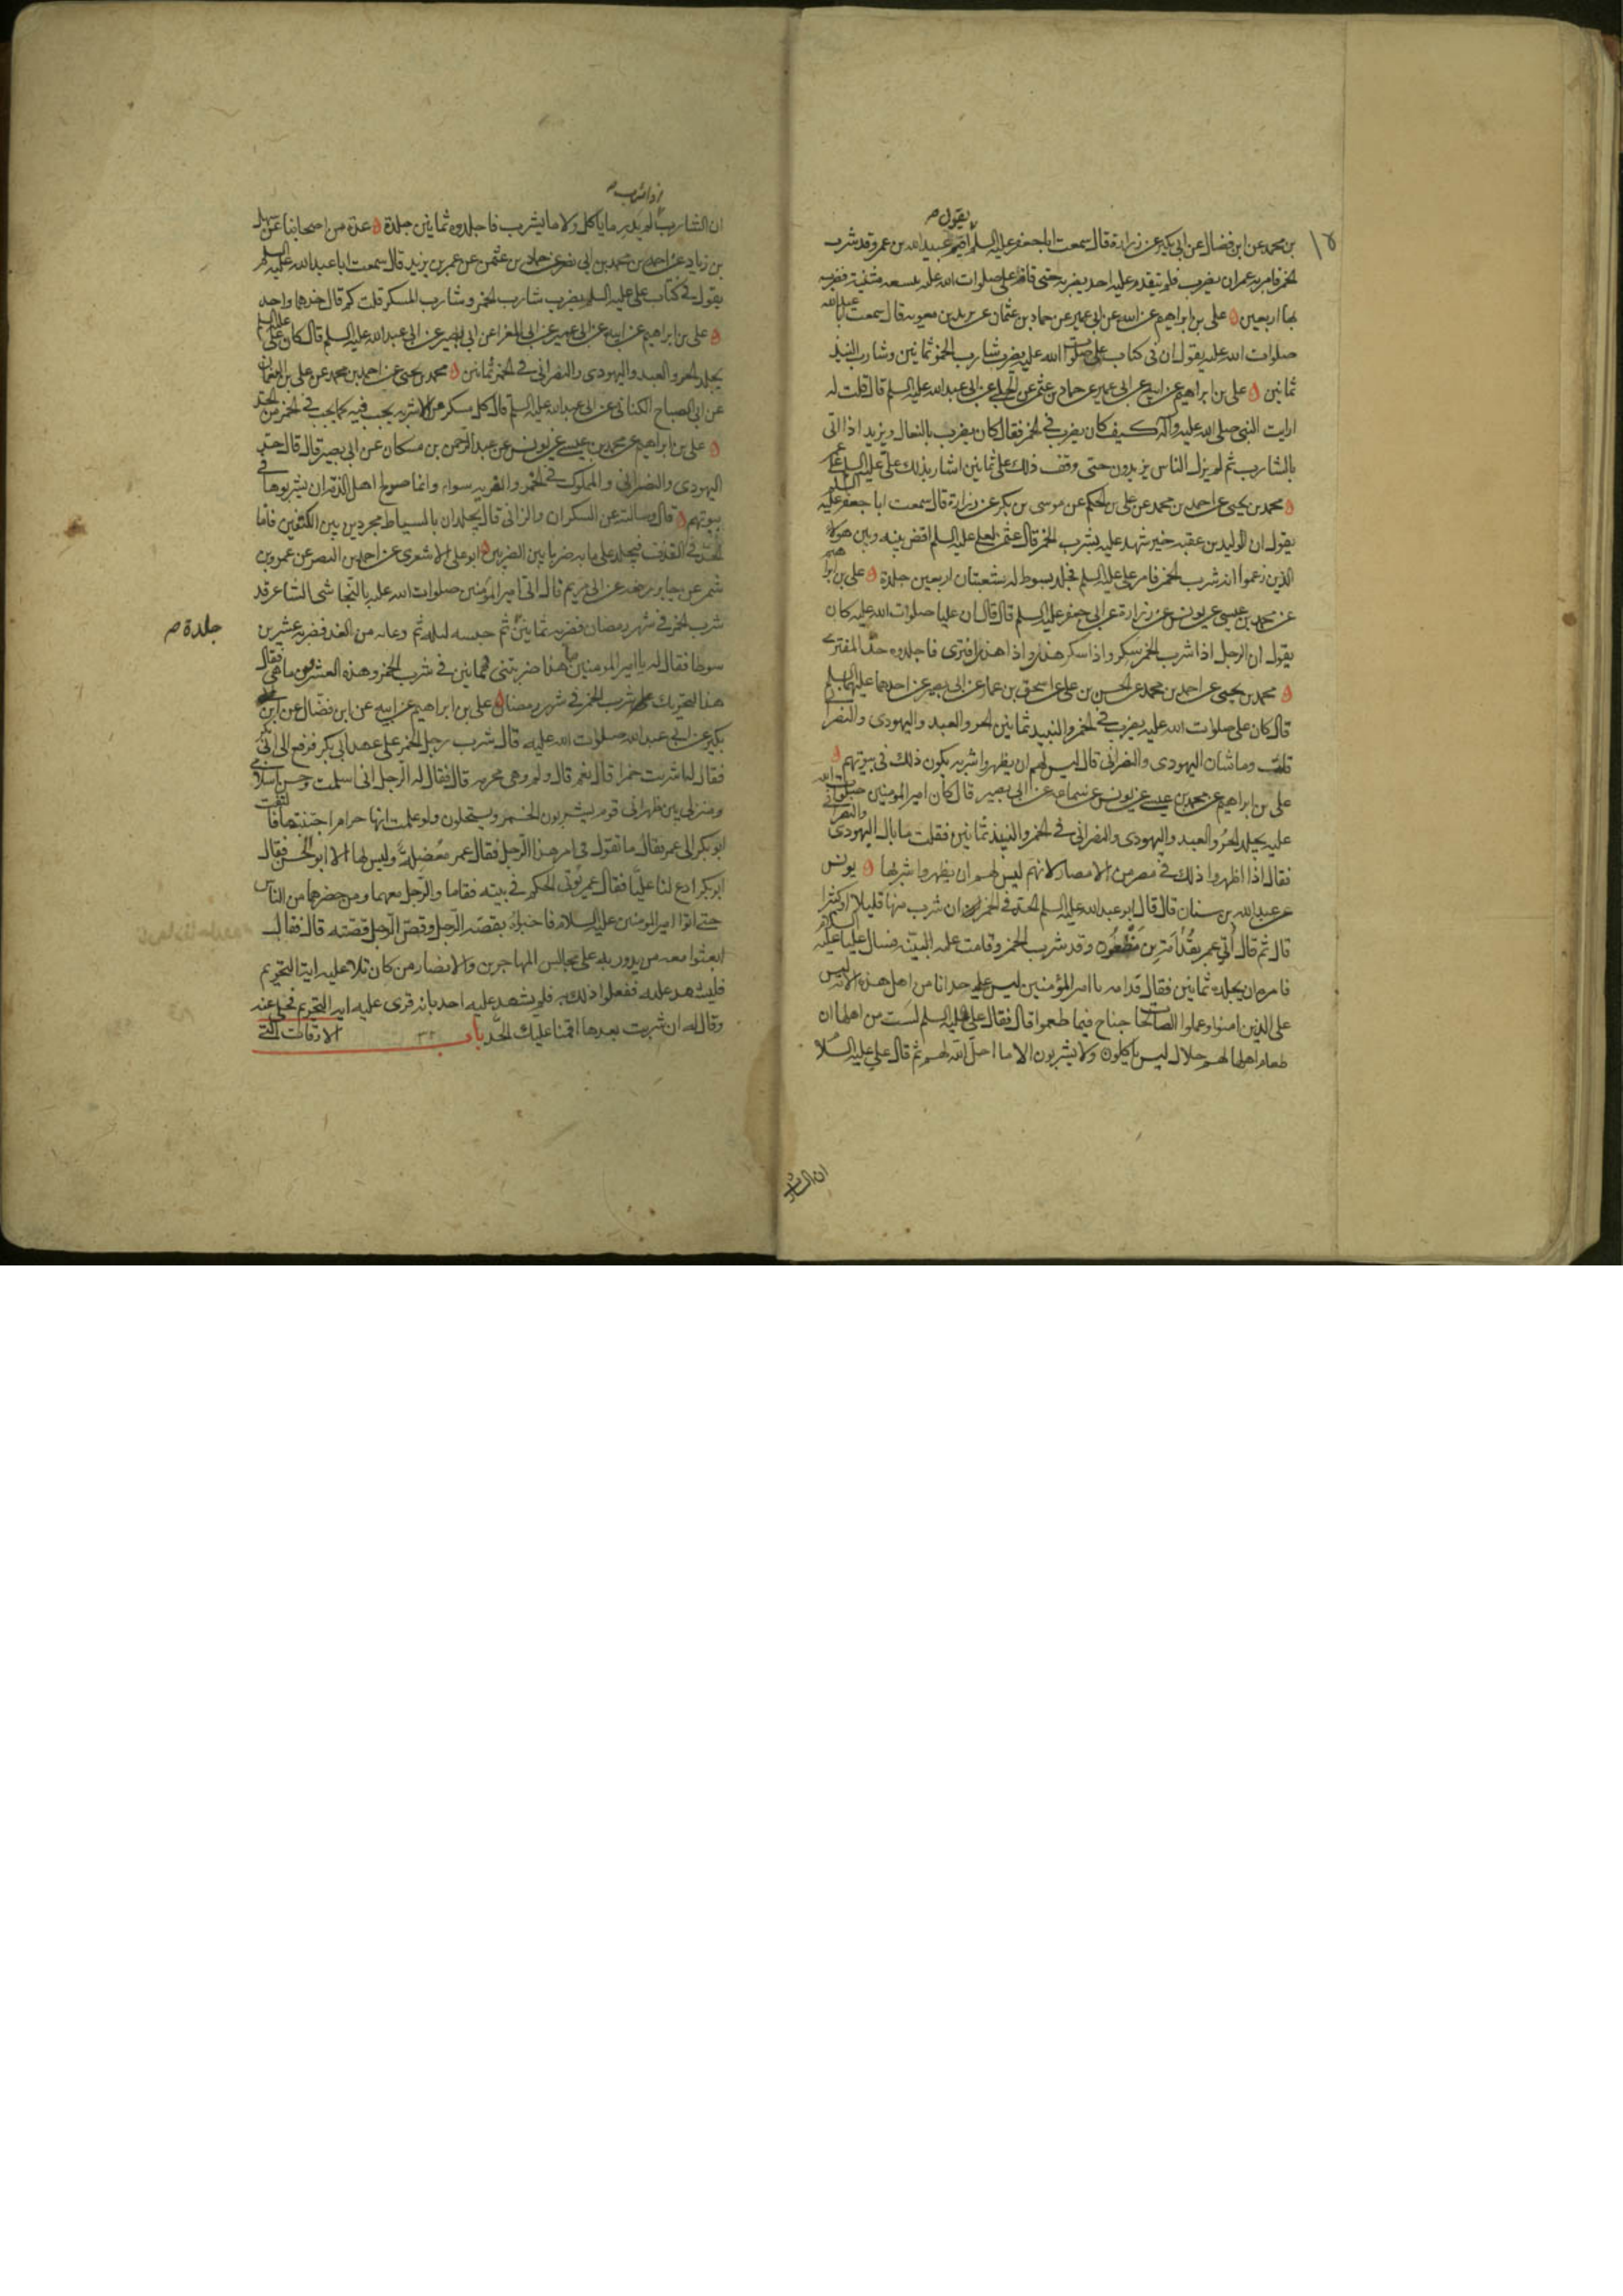 يقول ص
بن محمد عن ابن فضال عن ابن بكير عن زرارة قال سمعت ابا جعفر عليه السلم اقيم عبيد الله بن عمر وقد شرب
الخمر فامر به عمر ان يضرب فلم يتقدم عليه احد يضربه حتى قام على صلوات الله عليه بنسعه مثنية فضربه
بها اربعين علي بن ابراهيم عن ابيه عن ابن ابي عمير عن حماد بن عثمان عن بريد بن معويه قال سمعت ابا عبد الله
صلوات الله عليه يقول ان في كتاب علي صلوات الله عليه يضرب شارب الخمر ثمانين وشارب النبيذ
ثمانين علي بن ابراهيم عن ابيه عن ابن ابي عمير عن حماد بن عثمن عن الحلبي عن ابي عبد الله عليه السلم قال قلت له
ارايت النبي صلى الله عليه وآله كيف كان يضرب في الخمر فقال كان يضرب بالنعال ويزيد اذا اتى
بالشارب ثم لم يزل الناس يزيدون حتى وقف ذلك على ثمانين اشار بذلك علي عليه السلم على عمر
محمد بن يحيى عن احمد بن محمد عن علي بن الحكم عن موسى بن بكر عن زرارة قال سمعت ابا جعفر عليه السلم
يقول ان الوليد بن عقبه حين شهد عليه بشرب الخمر قال عثمن لعلي عليه السلم اقض بينه وبين هولاء
الذين زعموا انه شرب الخمر فامر علي عليه السلم فجلد بسوط له شعبتان اربعين جلدة علي بن ابراهيم
عن محمد بن عيسى عن يونس عن زرارة عن ابي جعفر عليه السلم قال قال ان عليا صلوات الله عليه كان
يقول ان الرجل اذا شرب الخمر سكر واذا سكر هذى واذا هذى افترى فاجلدوه حد المفترى
محمد بن يحيى عن احمد بن محمد عن الحسن بن علي عن اسحق بن عمار عن ابي بصير عن احدهما عليهما السلم
قال كان علي صلوات الله عليه يضرب في الخمر والنبيذ ثمانين الحر والعبد واليهودى والنصرانى
قلت وما شان اليهودى والنصرانى قال ليس لهم ان يظهروا شربه يكون ذلك في بيوتهم
علي بن ابراهيم عن محمد بن عيسى عن يونس عن سماعه عن ابي بصير قال كان امير المومنين صلوات الله
عليه يجلد الحر والعبد واليهودى والنصرانى في الخمر والنبيذ ثمانين فقلت ما بال اليهودى والنصرانى
فقال اذا اظهروا ذلك في مصر من الامصار لانهم ليس لهم ان يظهروا شربها يونس
عن عبد الله بن سنان قال قال ابو عبد الله عليه السلم الحد في الخمر ان شرب منها قليلا او كثيرا
قال ثم قال أتي عمر بقدامة بن مظعون وقد شرب الخمر وقامت عليه البينه فسال عليا عليه السلام
فامره ان يجلده ثمانين فقال قدامه يا امير المؤمنين ليس علي حد انا من اهل هذه الايه ليس
على الذين امنوا وعملوا الصالحات جناح فيما طعموا قال فقال علي عليه السلم لست من اهلها ان
طعام اهلها لهم حلال ليس ياكلون ولا يشربون الا ما احل الله لهم ثم قال علي عليه السلام
ان الشارب
اذا شرب ص
ان الشارب لم يدر ما ياكل ولا ما يشرب فاجلدوه ثمانين جلدة عدة من اصحابنا عن سهل
بن زياد عن احمد بن محمد بن ابي نصر عن حماد بن عثمن عن عمر بن يزيد قال سمعت ابا عبد الله عليه السلم
يقول في كتاب علي عليه السلم يضرب شارب الخمر وشارب المسكر قلت كم قال حدهما واحد
علي بن ابراهيم عن ابيه عن ابن ابي عمير عن ابي المغرا عن ابي بصير عن ابي عبد الله عليه السلم قال كان علي عليه السلم
يجلد الحر والعبد واليهودى والنصراني في الخمر ثمانين محمد بن يحيى عن احمد بن محمد عن علي بن النعمان
عن ابي الصباح الكناني عن ابي عبد الله عليه السلم قال كل مسكر من الاشربه يجب فيه كما يجب في الخمر من الحد
علي بن ابراهيم عن محمد بن عيسى عن يونس عن عبد الرحمن بن مسكان عن ابي بصير قال قال حد
اليهودى والنصرانى والمملوك في الخمر والفريه سواء وانما صولح اهل الذمه ان يشربوها في
بيوتهم قال وسالته عن السكران والزانى قال يجلدان بالسياط مجردين بين الكتفين فاما
الحد في القذف فيجلد على ما به ضربا بين الضربين ابو علي الاشعرى عن احمد بن النضر عن عمرو بن
شمر عن جابر رفعه عن ابي مريم قال اتي امير المؤمنين صلوات الله عليه بالنجاشى الشاعر قد
شرب الخمر في شهر رمضان فضربه ثمانين ثم حبسه ليله ثم دعا به من الغد فضربه عشرين
جلدة ص
سوطا فقال له يا امير المومنين ما هذا ضربتنى ثمانين في شرب الخمر وهذه العشرون ما هي فقال
هذا لتجريك على شرب الخمر في شهر رمضان علي بن ابراهيم عن ابيه عن ابن فضال عن ابن
بكير عن ابي عبد الله صلوات الله عليه قال شرب رجل الخمر على عهد ابي بكر فرفع الى ابي بكر
فقال له اشربت خمرا قال نعم قال ولم وهى محرمه قال فقال له الرجل انى اسلمت وحسن اسلامى
ومنزلى بين ظهرانى قوم يشربون الخمر ويستحلون ولو علمت انها حرام اجتنبتها فالتفت
ابو بكر الى عمر فقال ما تقول في امر هذا الرجل فقال عمر معضلة وليس لها الا ابو الحسن فقال
ابو بكر ادع لنا عليا فقال عمر يؤتى الحكم في بيته فقاما والرجل معهما ومن حضرهما من الناس
حتى اتوا امير المومنين عليه السلام فاخبراه بقصه الرجل وقص الرجل قصته قال فقال
ابعثوا معه من يدور به على مجالس المهاجرين والانصار من كان تلا عليه اية التحريم
فليشهد عليه ففعلوا ذلك به فلم يشهد عليه احد بانه قرى عليه اية التحريم فخلى عنه
وقال له ان شربت بعدها اقمنا عليك الحد باب الاوقات التى